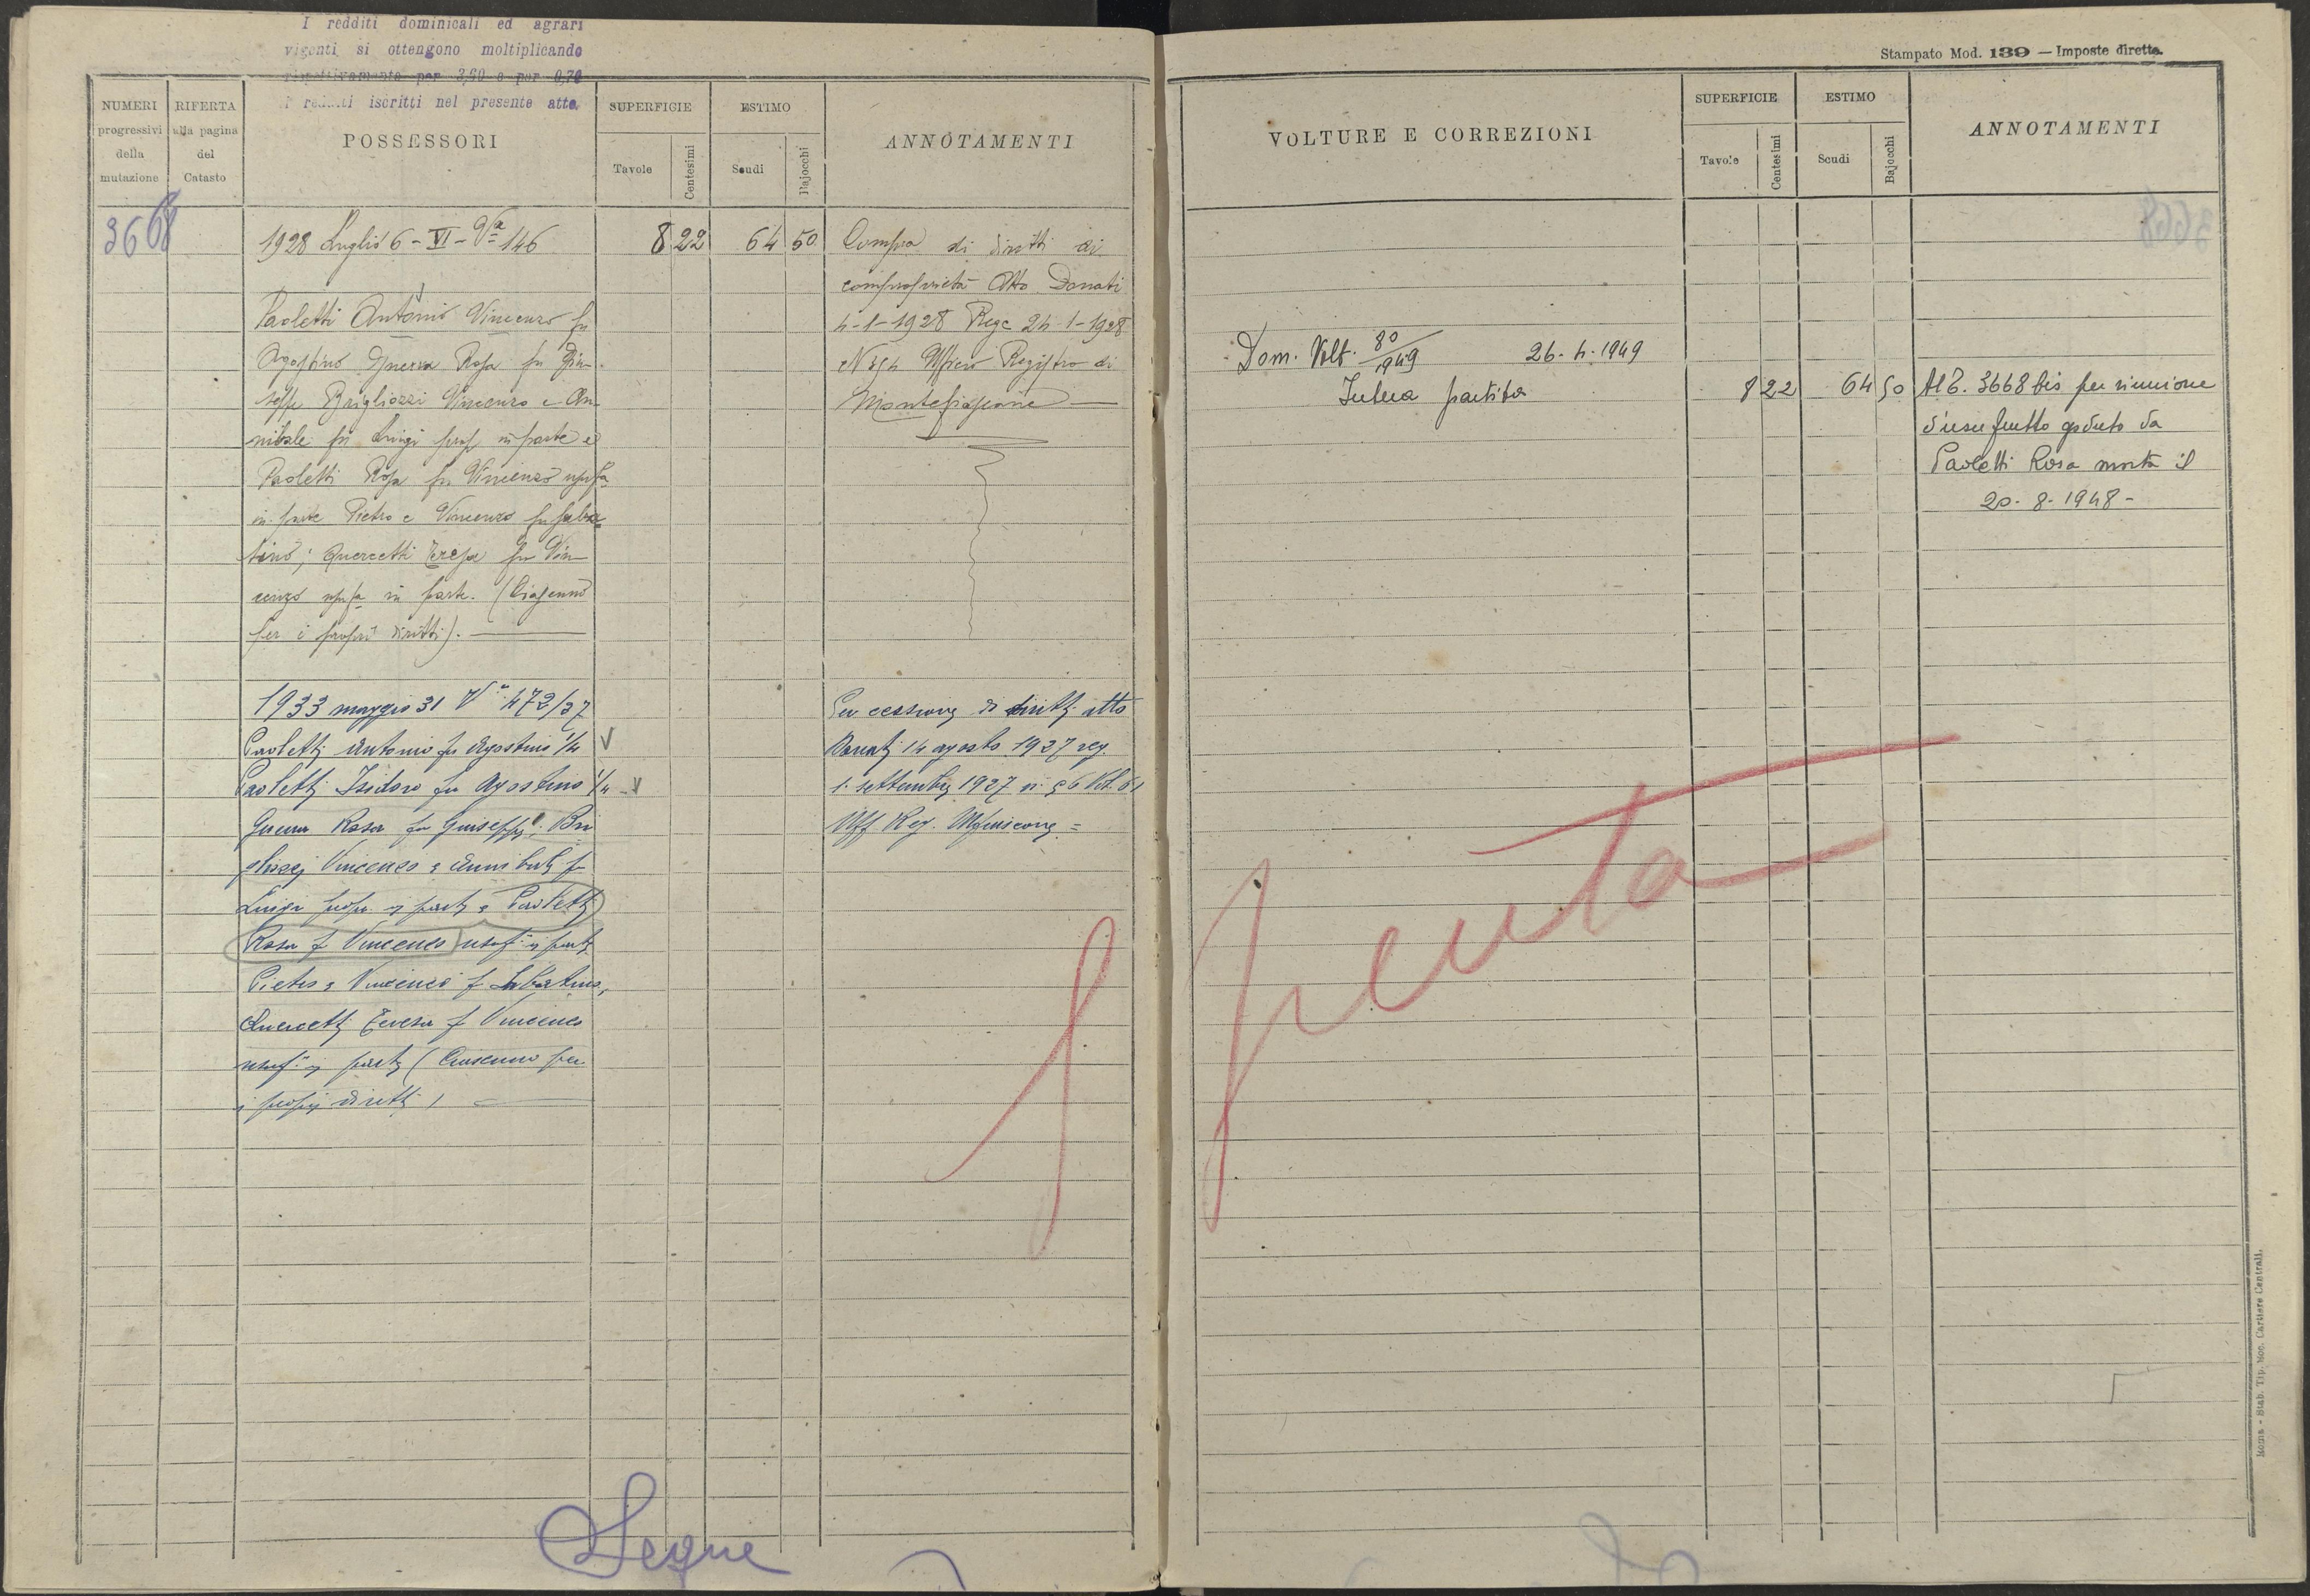 I redditi dominicali ed agrari
vigenti si ottengono moltiplicando
rispettivamente per 3,60 e per 0,70
i redditi iscritti nel presente atto.
NUMERI
progressivi
della
mutazione
RIFERTA
alla pagina
del
Catasto
POSSESSORI
SUPERFICIE
Tavole
Centesimi
ESTIMO
Scudi
Bajocchi
ANNOTAMENTI
3668
1928 Luglio 6 - VI - Va 146
8 22
64 50
Paoletti Antonio Vincenzo fu
Agostino Guerra Rosa fu Giu-
seppe Brigliozzi Vincenzo e An-
nibale fu Luigi prop in parte e
Paoletti Rosa fu Vincenzo usufa
in parte Pietro e Vincenzo fu Saba-
tino; Quercetti Teresa fu Vin-
cenzo usufa in parte. (Ciascuno
per i propri diritti).
Compra di diritti di
comproprietà Atto Donati
4-1-1928 Rege 24-1-1928
Ufficio Registro di
Montefiascone
1933 maggio 31 Va 472/27
Paoletti Antonio fu Agostino 1/4 V
Paoletti Isidoro fu Agostino 1/4 V
Guerra Rosa fu Giuseppe; Bri
gliozzi Vincenzo e Annibale fu
Luigi prop. in parte e Paoletti
Rosa f Vincenzo usuf. in parte
Pietro e Vincenzo f Sabatino,
Quercetti Teresa f Vincenzo
usuf. in parte (Ciascuno per
i propri diritti)
Per cessione di diritti atto
Donati 14 agosto 1927 reg.
1. settembre 1927 n. 56 Vol. 61
Uff Reg. Mfiascone =
Segue
Stampato Mod. 139 — Imposte dirette.
VOLTURE E CORREZIONI
SUPERFICIE
Tavole
Centesimi
ESTIMO
Scudi
Bajocchi
ANNOTAMENTI
Dom. Volt. 80/1949 26-4-1949
Intera partita
8 22
64 50
Al C. 3668 bis per riunione
d'usufrutto goduto da
Paoletti Rosa morta il
20-8-1948-
Spenta
Roma - Stab. Tip. Soc. Cartiere Centrali.